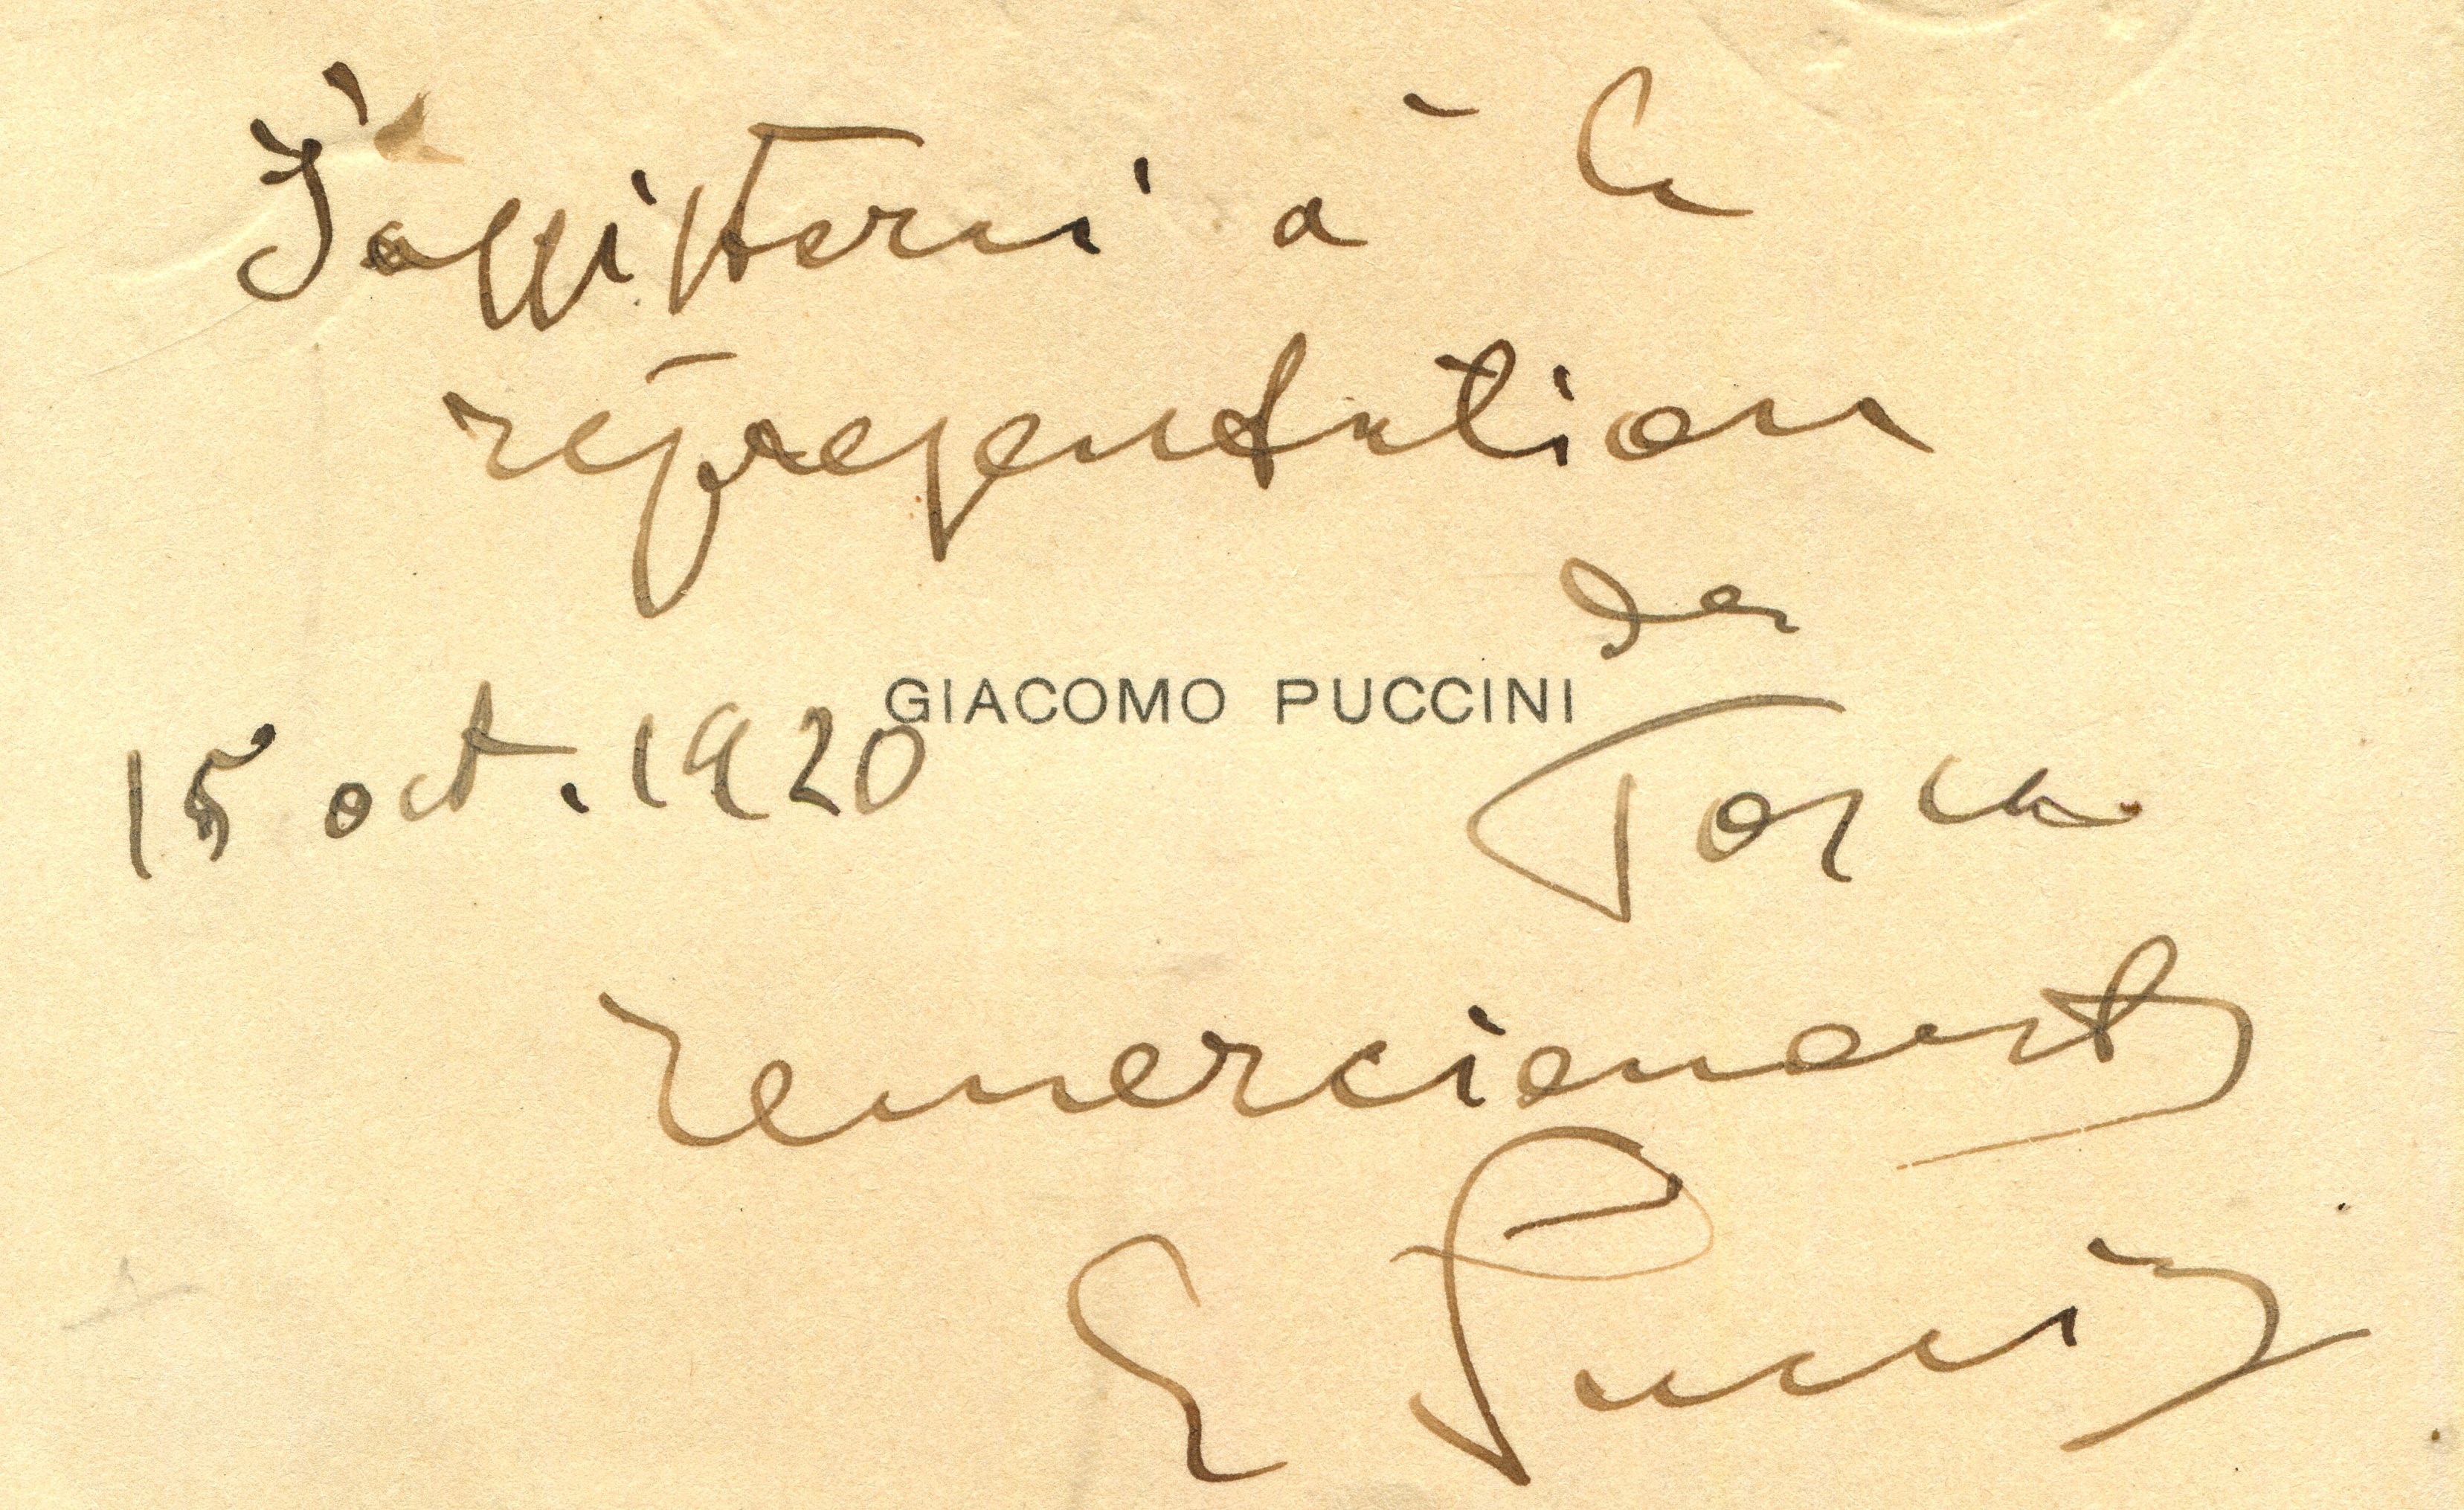 J'assisterai à la
représentation
de
GIACOMO PUCCINI
15 oct. 1920
Tosca
remerciements
G Puccini